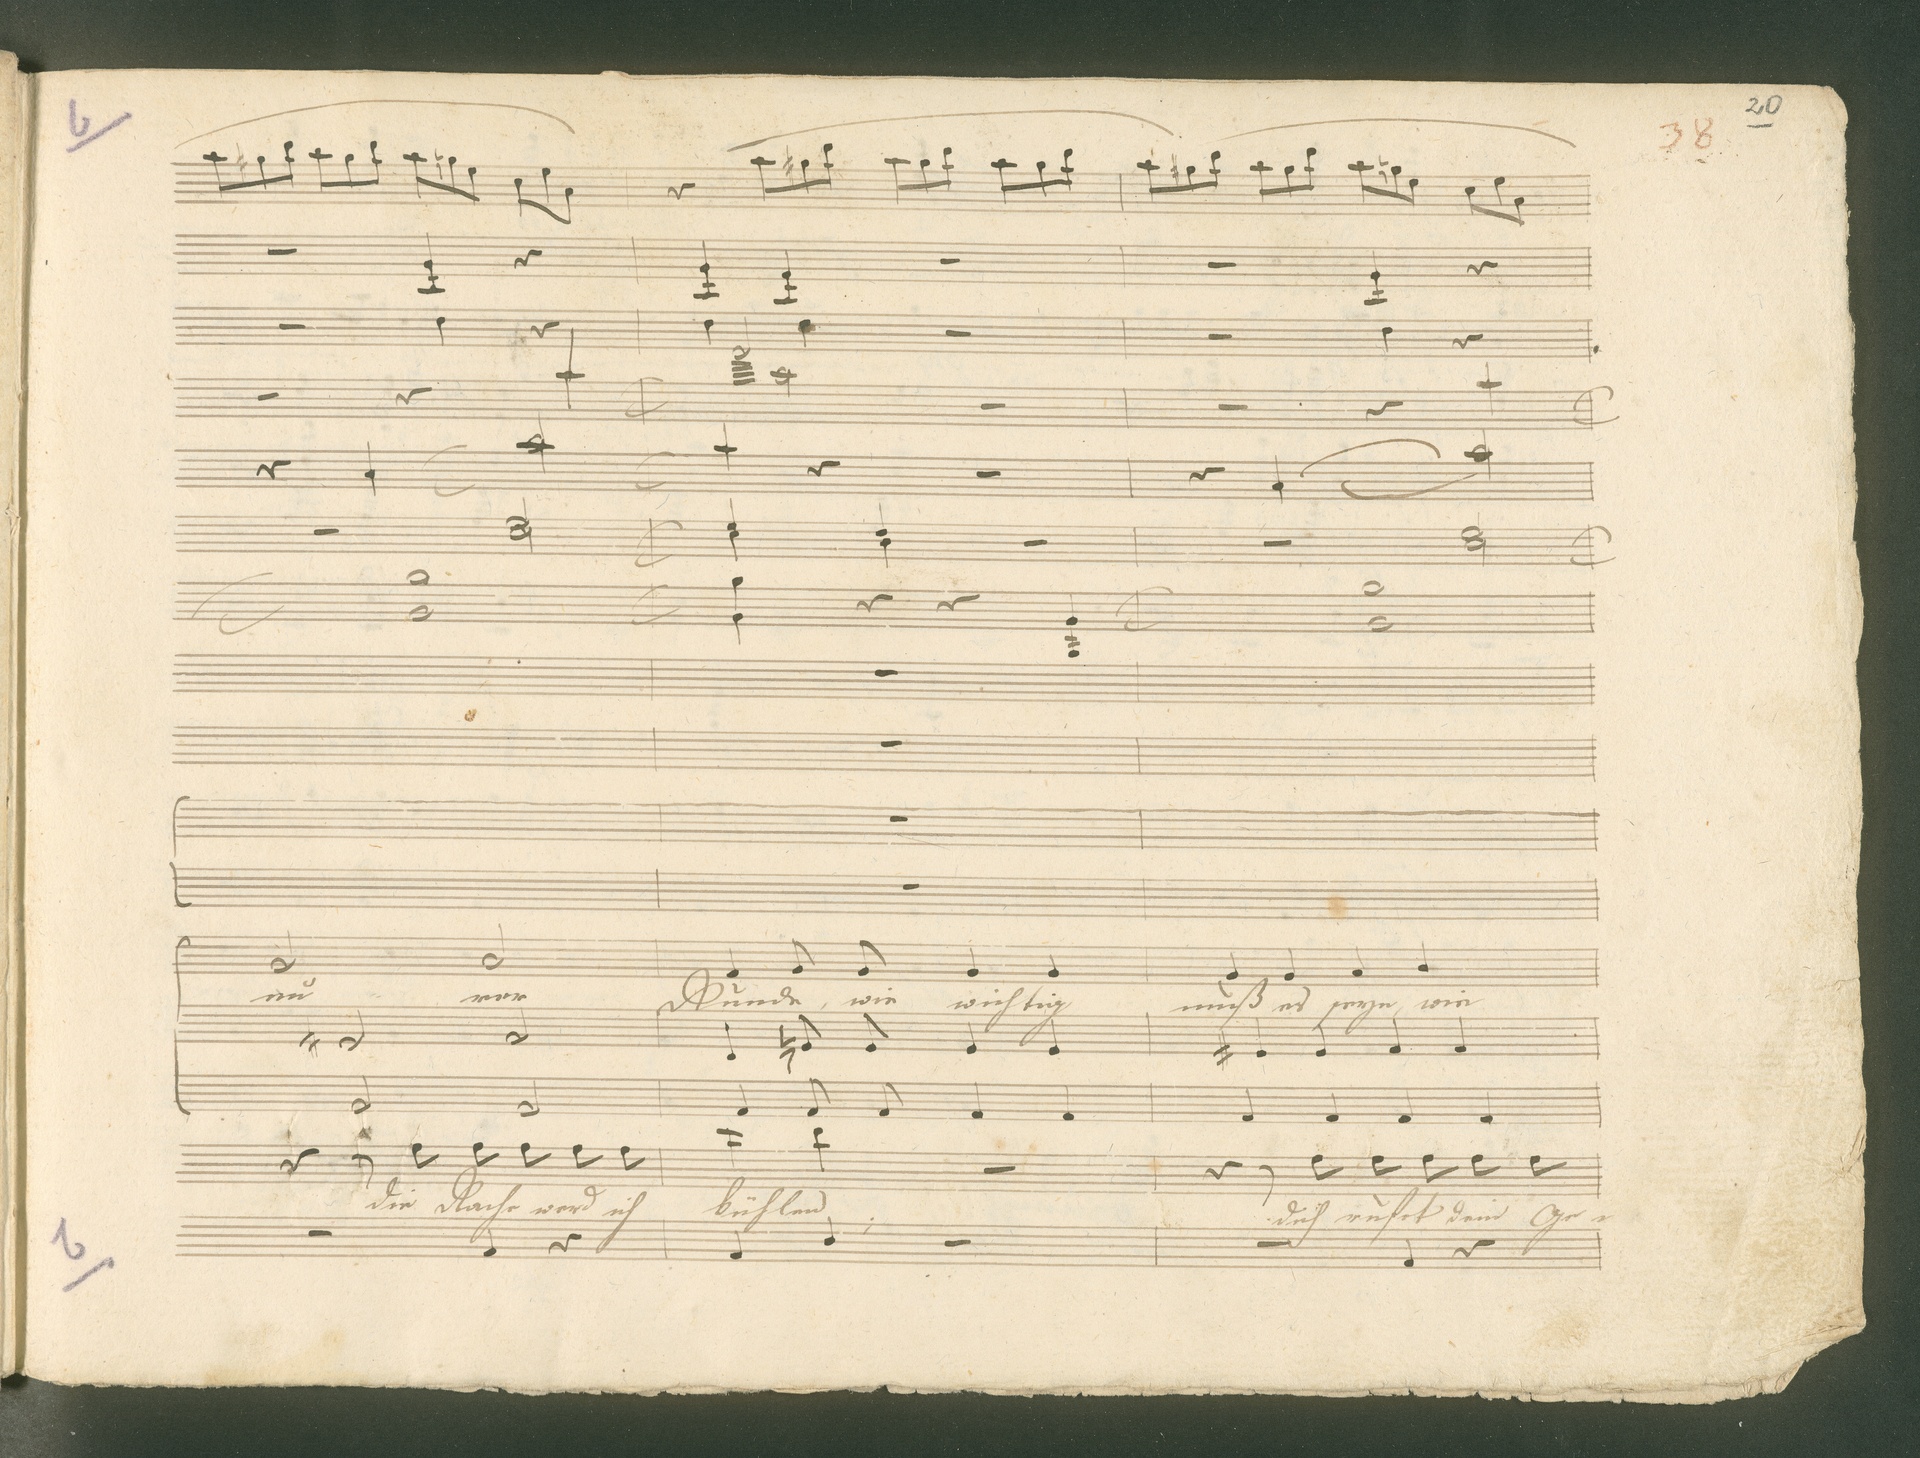 20
38
nu - rer Kunde, wie wichtig muß es seyn, wie
die Rache werd ich kühlen; dich rufet dein Ge